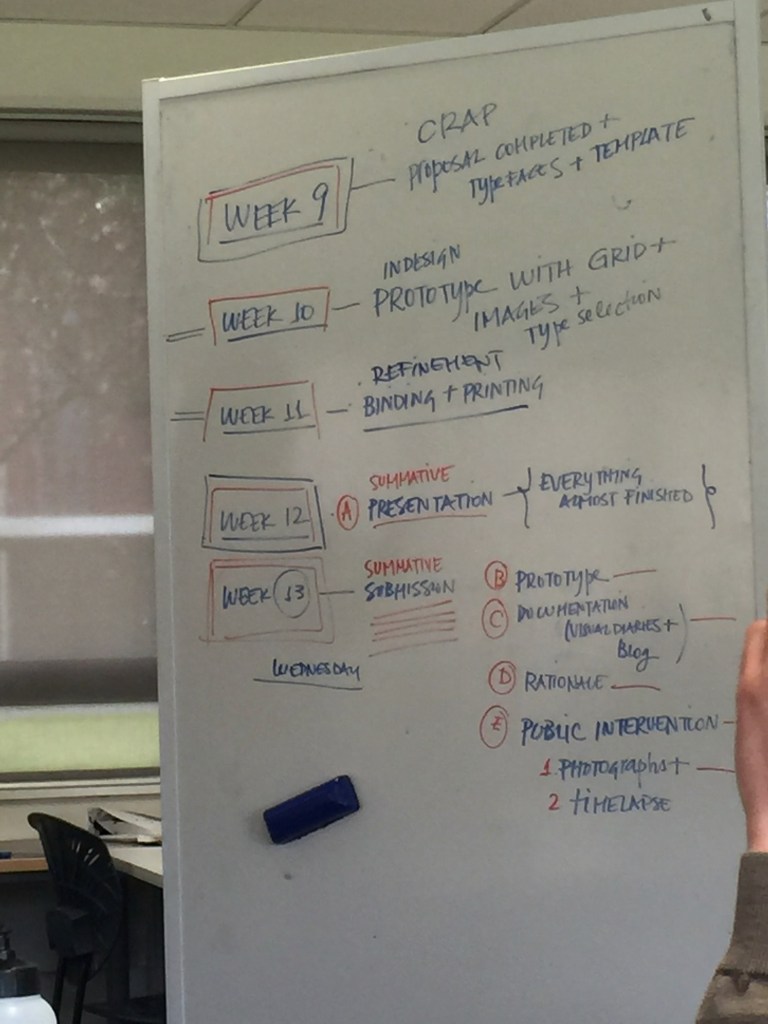 CRAP
WEEK 9 — PROPOSAL COMPLETED +
TYPEFACES + TEMPLATE
INDESIGN
WEEK 10 — PROTOTYPE WITH GRID +
IMAGES +
TYPE SELECTION
REFINEMENT
WEEK 11 — BINDING + PRINTING
SUMMATIVE
WEEK 12 A PRESENTATION — { EVERYTHING
ALMOST FINISHED }
SUMMATIVE
WEEK 13 — SUBMISSION
WEDNESDAY
B PROTOTYPE —
C DOCUMENTATION
(VISUAL DIARIES +
Blog) —
D RATIONALE —
E PUBLIC INTERVENTION —
1. PHOTOGRAPHS + —
2 TIMELAPSE